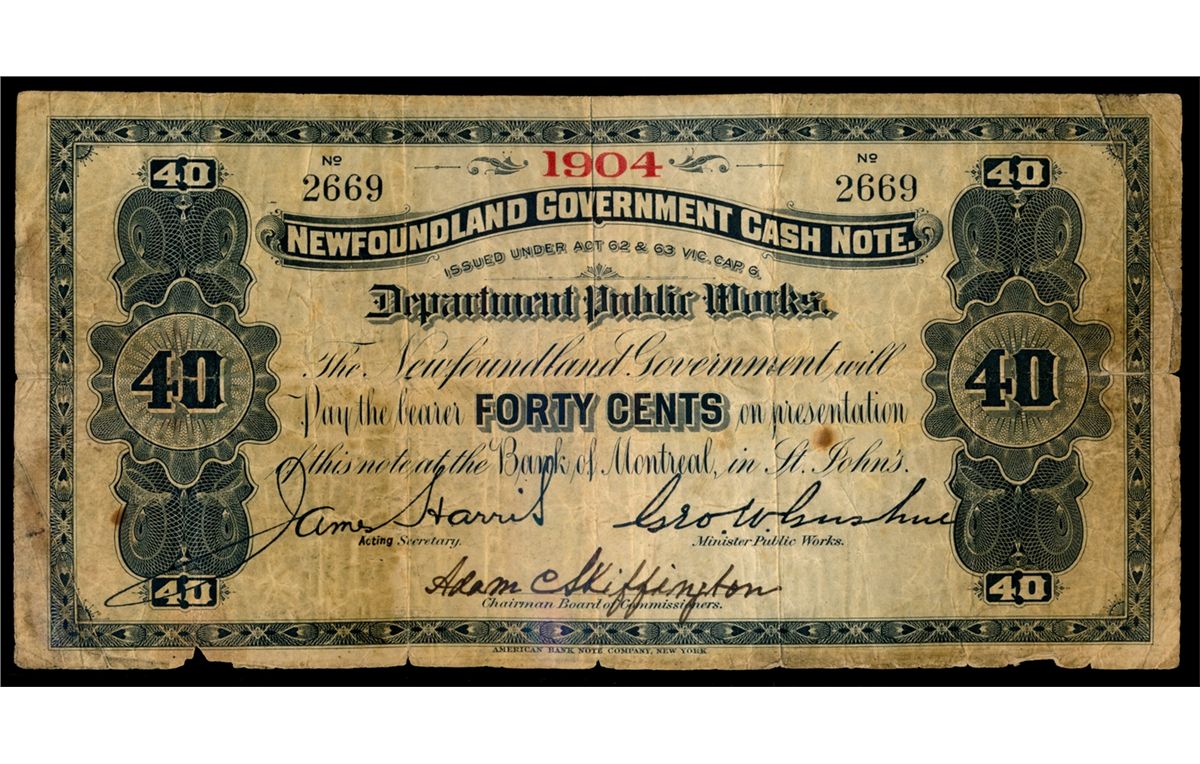 1904
No 2669
No 2669
40
40
NEWFOUNDLAND GOVERNMENT CASH NOTE.
ISSUED UNDER ACT 62 & 63 VIC. CAP. 6.
Department Public Works.
The Newfoundland Government will
40
Pay the bearer FORTY CENTS on presentation
40
of this note at the Bank of Montreal, in St. John's.
James Harris
Geo. W. Gushue
Acting Secretary.
Minister Public Works.
Adam C Skiffington
40
Chairman Board of Commissioners.
40
AMERICAN BANK NOTE COMPANY, NEW YORK